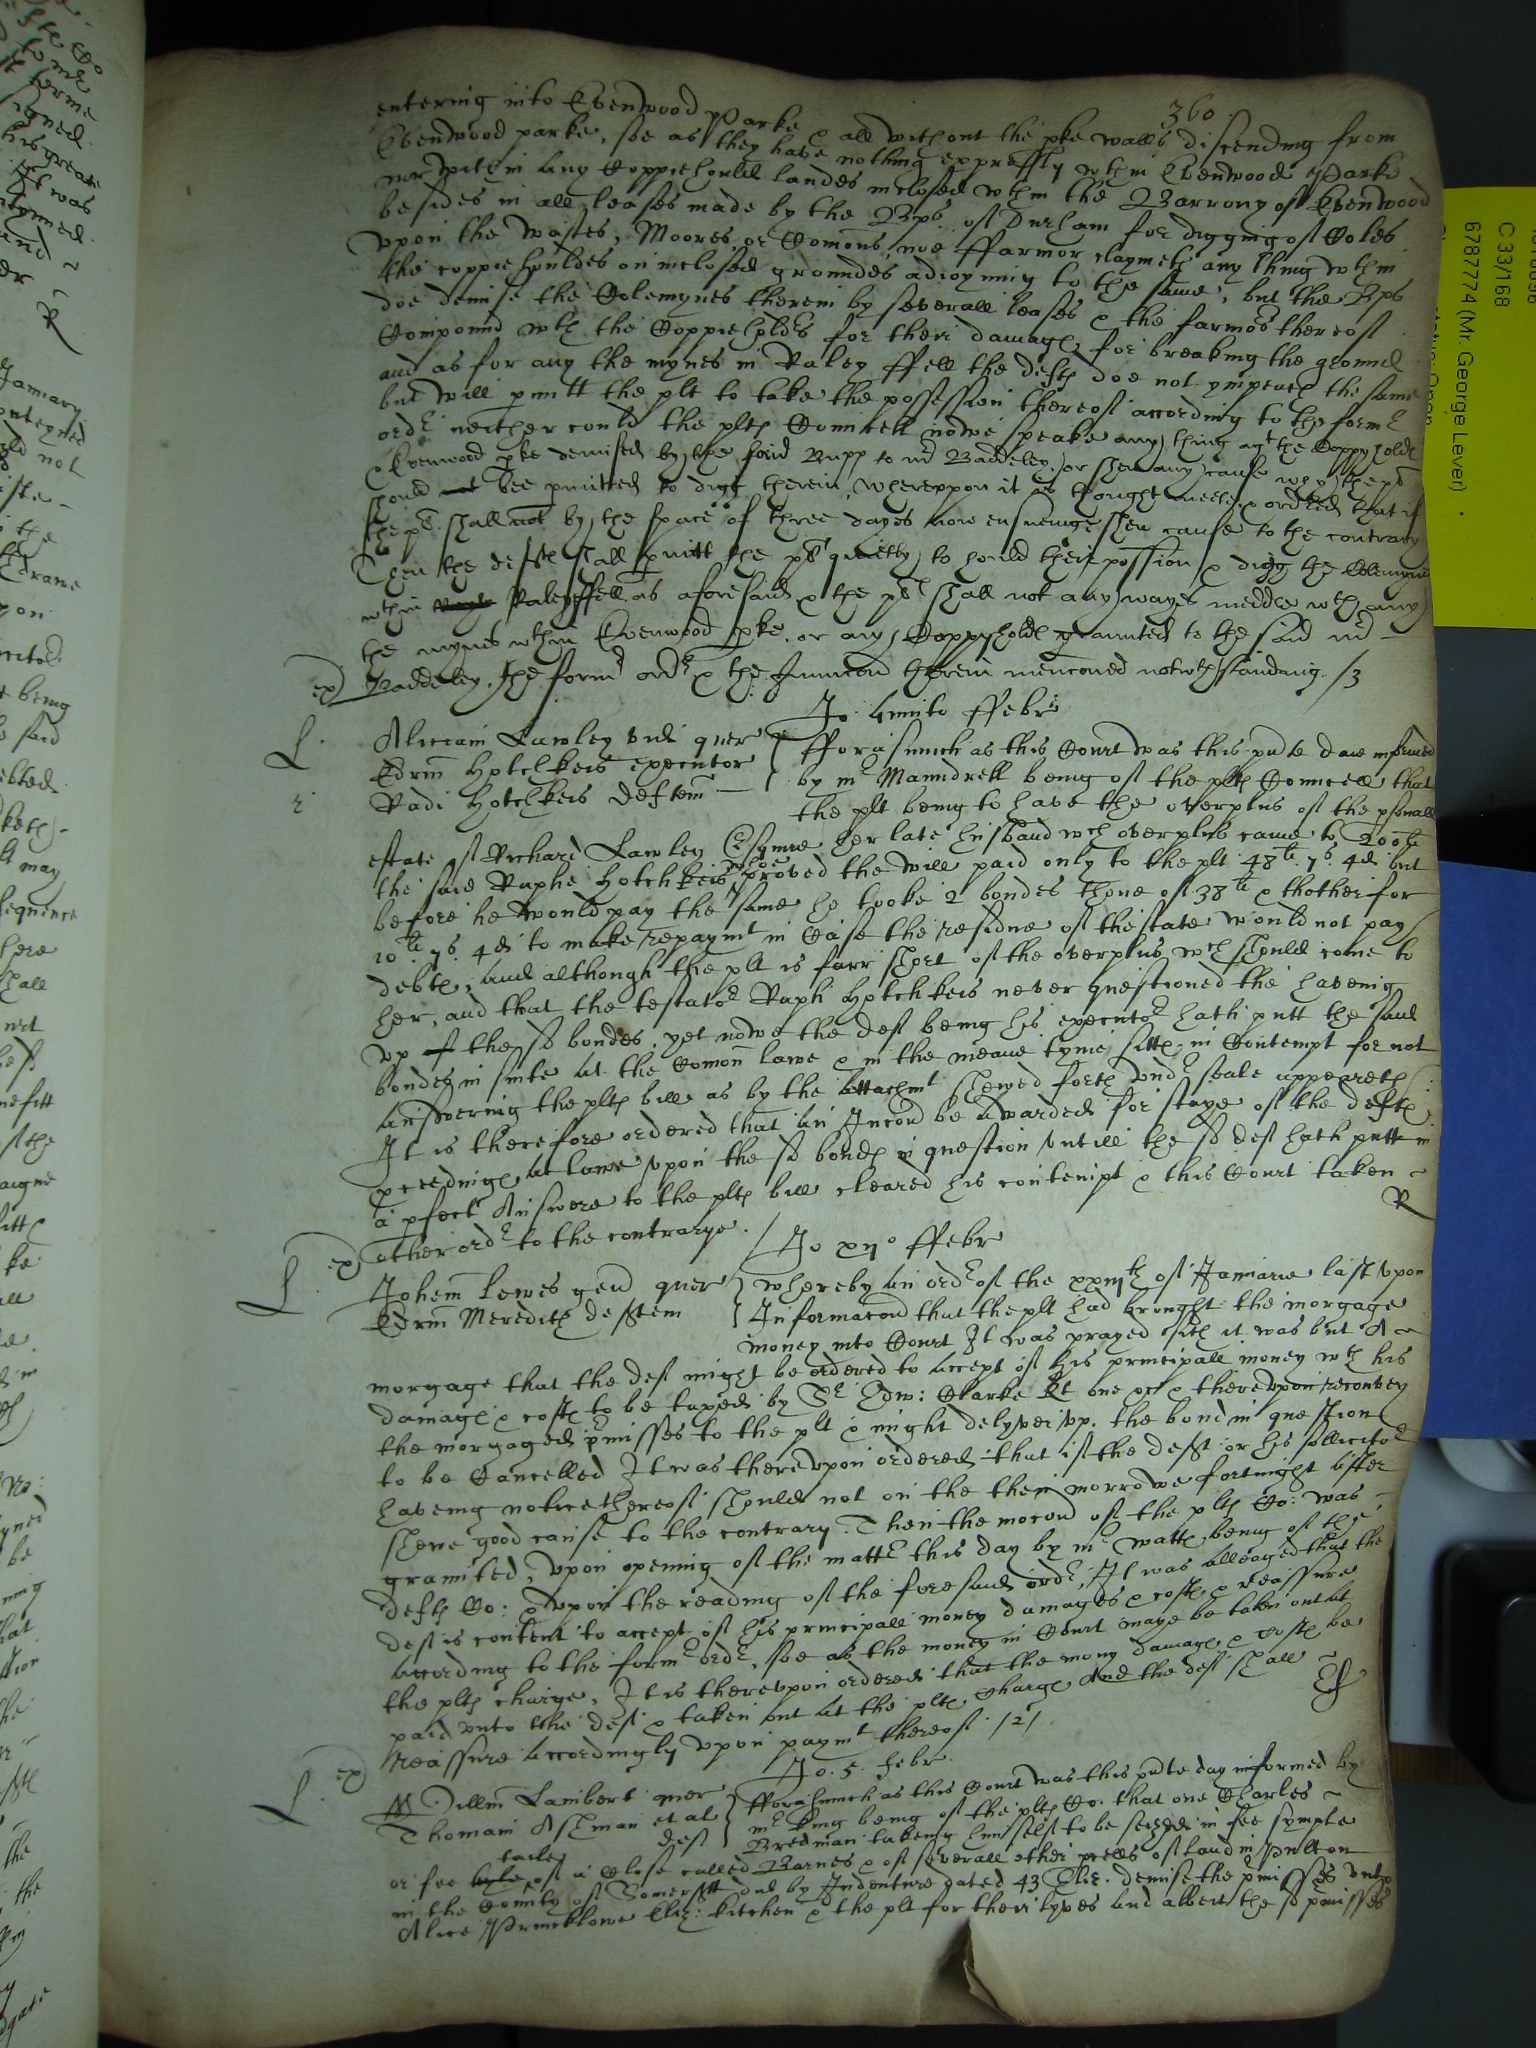 360
entering into Evenwood Parke & all without the pke walls discending from
Evenwood parke, soe as they have nothing expressly wthin Evenwood Parke
nor within any Coppiehould landes inclosed wthin the Barrony of Evenwood
besides in all leases made by the Bps of Durham for digging of Coles
vpon the wastes, Moores or Comons, noe ffarmor claymeth any thing wthin
the coppiehouldes on inclosed groundes adioyning to the same, but the Bps
doe demise the Colemynes therein by severall leases & the farmors thereof
Compound wth the Coppieholdrs for their damage for breaking the ground
and as for any the mynes in Raley ffell the defts doe not ympeach the same
but will pmitt the plt to take the possession thereof according to the formr
ordr neither could the plts Councell nowe speake any thing agt the Coppyholds
& Evenwood pke demised by the said Bupp to Baddeley, or shew any cause why they
should not bee pmitted to digg therein, wherevpon it is thought meete & ordered that if
the pl shall not by the space of three dayes now ensueinge shew cause to the contrary
Then the defts shall pmitt the pl quietly to hould their possion & digg the Colemynes
wthin Raley ffell as aforesaid & the pl shall not any wayes meddle wth any
the mynes wthin Evenwood pke, or any Coppyholds graunted to the said
Baddeley, the formr ordr & the Iniuncon therein menconed notwthstanding /3
ex
Io quinto ffebr
L.
Aliciam Lawley vid quer
Edrm Hotchkeis executor
Radi Hotchkeis Deftem
fforasmuch as this Court was this pnte daie informed
by mr Maundrell being of the plts Councell that
the plt being to have the overplus of the psonall
estate of Richard Lawley Esquire her late husband wch overplus came to 200li
the said Raphe Hotchkeis whoe proved the will paid only to the plt 48li 7s 4d but
before he would pay the same he tooke 2 bondes thone of 38li & thother for
10li 7s 4d to make repaymt in Case the residue of thestate would not pay
debts, and although the plt is farr short of the overplus wch should come to
her, and that the testator Raph Hotchkeis never questioned the haveing
vp of these bondes, yet nowe the def being his executor hath putt the said
bondes in suite at the Comon lawe & in the meane tyme sitts in Contempt for not
answering the plts bill as by the attachmt shewed forth vndr seale appeareth
It is therefore ordered that an Iniuncon be awarded for staye of the defts
pceedings at lawe vpon the sd bonds in question vntill the sd def hath putt in
a pfect Answere to the plts bill cleared his contempt & this Court taken
other ordr to the contrarye. /
R
ex
Io xijo ffebr
L.
Iohem Lewes gen quer
Edrm Meredith deftem
whereby an ordr of the xxiijth of Ianuarie last vpon
Informacon that the plt had brought the morgage
money into Court It was prayed sith it was but A
morgage that the def might be ordered to accept of his principall money wth his
damage & costs to be taxed by Sr Edw: Clarke kt one &c & therevpon reconvey
the morgaged pmisses to the plt & might delyver vp the bond in question
to be Cancelled It was therevpon ordered that if the deft or his sollicitor
haveing notice thereof should not on the then morrowe fortnight after
shewe good cause to the contrary. Then the mocon of the plts Co: was
graunted, vpon opening of the mattr this day by mr Watts being of the
defts Co: & vpon the reading of the foresaid ordr, It was alleaged that the
def is content to accept of his principall money damages & costs & reassure
according to the formr ordr, soe as the money in Court maye be taken out at
the plts charge, It is therevpon ordered that the mony damage & costs be
paid vnto the def & taken out at the plts charge And the def shall
reassure accordingly vpon paymt thereof. /2/
ex
Io. 5. febr
L.
Willm Lambert quer
Thomam Ashman et al
def
fforasmuch as this Court was this pnte day informed by
mr King being of the plts Co. that one Charles
Bredman taking himself to be seized in fee symple
or fee taile of a Close called Barnes & of severall other pcells of land in Pulton
in the County of Somerset did by Indenture dated 43 Eliz. demise the pmisses vnto
Alice Eliz: Kitchen & the plt for their lyves and albeit the sd pmisses
C 33/168
6787774 (Mr. George Lever)